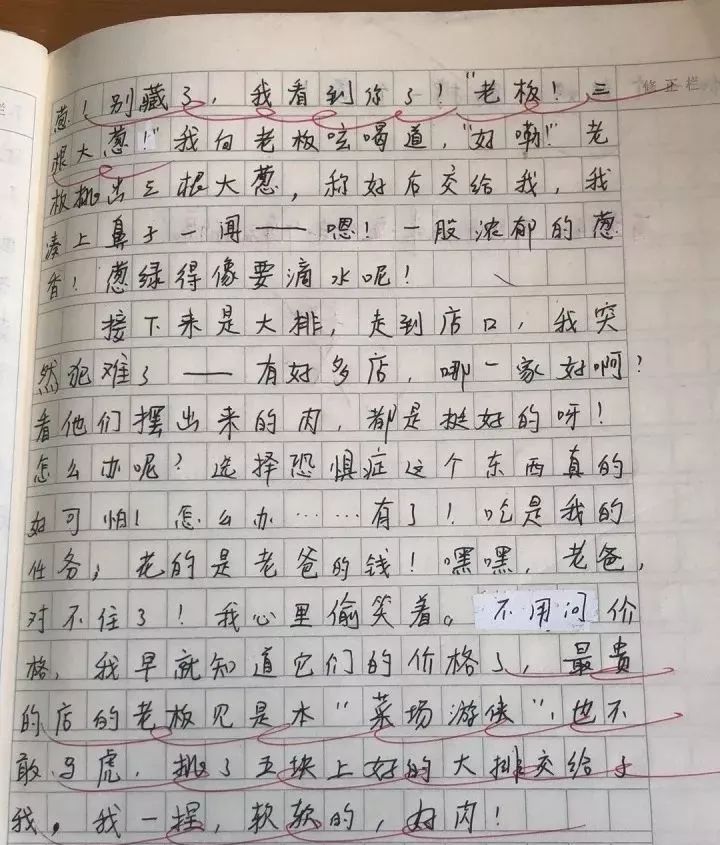 修正栏
葱！别藏了，我看到你了！“老板！三
根大葱！”我向老板吆喝道，“好嘞！”老
板挑出三根大葱，称好后交给我，我
凑上鼻子一闻——嗯！一股浓郁的葱
香！葱绿得像要滴水呢！
接下来是大排，走到店口，我突
然犯难了——有好多店，哪一家好啊？
看他们摆出来的肉，都是挺好的呀！
怎么办呢？选择恐惧症这个东西真的
好可怕！怎么办……有了！吃是我的
任务，花的是老爸的钱！嘿嘿，老爸，
对不住了！我心里偷笑着。不用问价
格，我早就知道它们的价格了，最贵
的店的老板见是本“菜场游侠”，也不
敢马虎，挑了五块上好的大排交给了
我。我一捏，软软的，好肉！